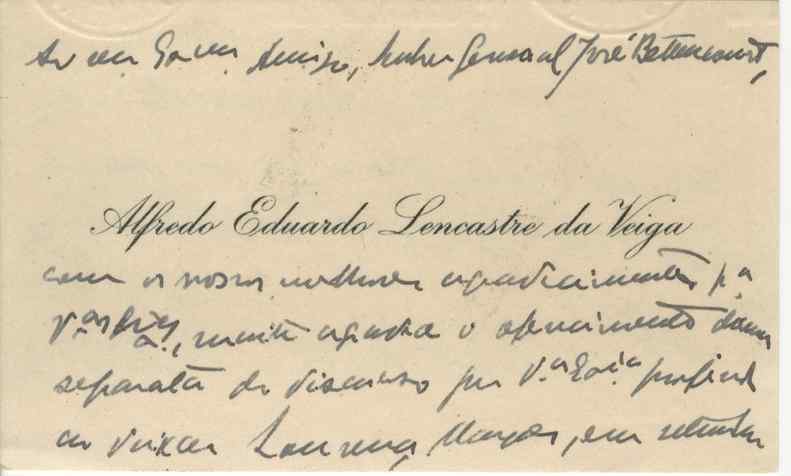 Ao seu Exmº. Amigo, Senhor General José Bettencourt,
Alfredo Eduardo Lencastre da Veiga
com os nossos melhores agradecimentos p.ª
V.as Ex.as, muito agradece o oferecimento duma
separata do discurso por V.ª Ex.ia proferido
ao deixar Lourenço Marques, em